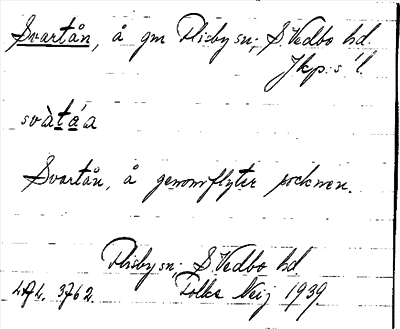 Svartån, å gm Flisby sn; S Vedbo hd.
Jkp:s l.
svàtáa
Svartån, å genomflyter socknen.
Flisby sn; S Vedbo hd
3762. Folke Neij 1939